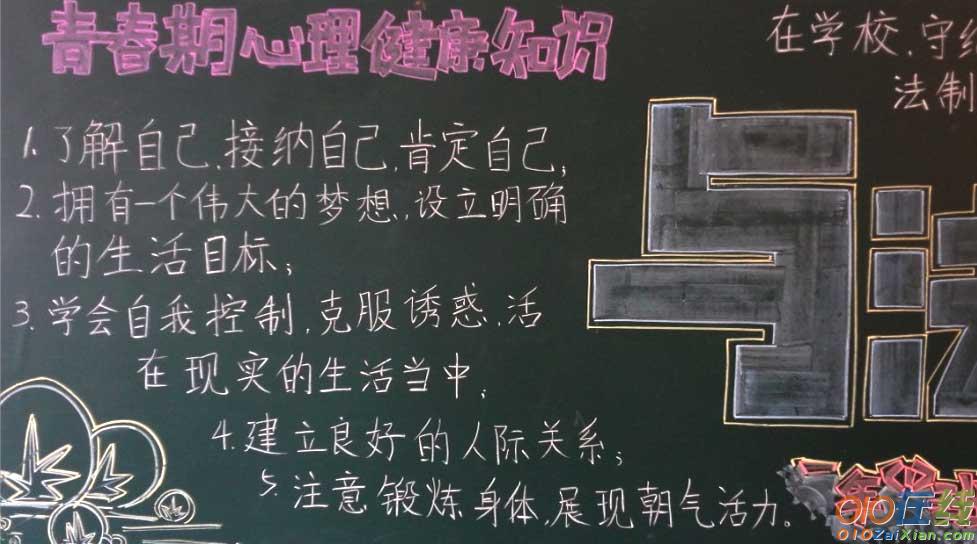 青春期心理健康知识
1.了解自己,接纳自己,肯定自己;
2.拥有一个伟大的梦想,设立明确
的生活目标;
3.学会自我控制,克服诱惑,活
在现实的生活当中;
4.建立良好的人际关系;
5.注意锻炼身体,展现朝气活力。
在学校,守纪
法制
与法
010在线
010ZaiXian.com